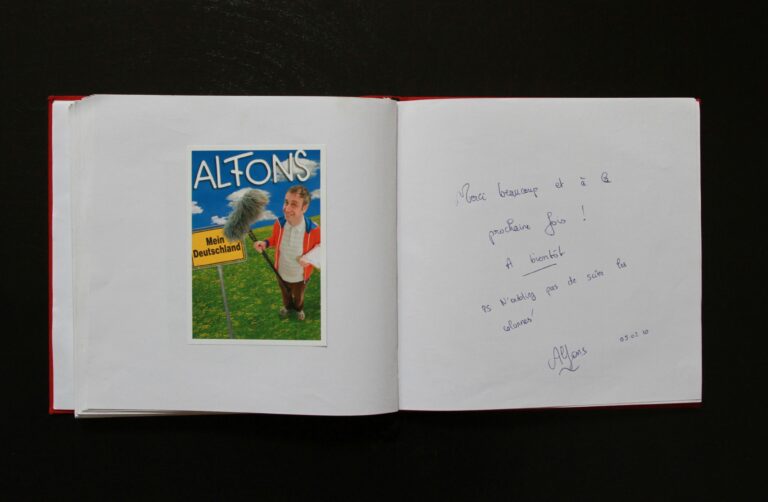 ALFONS
Mein
Deutschland
Merci beaucoup et à la
prochaine fois !
A bientôt
PS N'oubliez pas de
Alfons 09.02.10